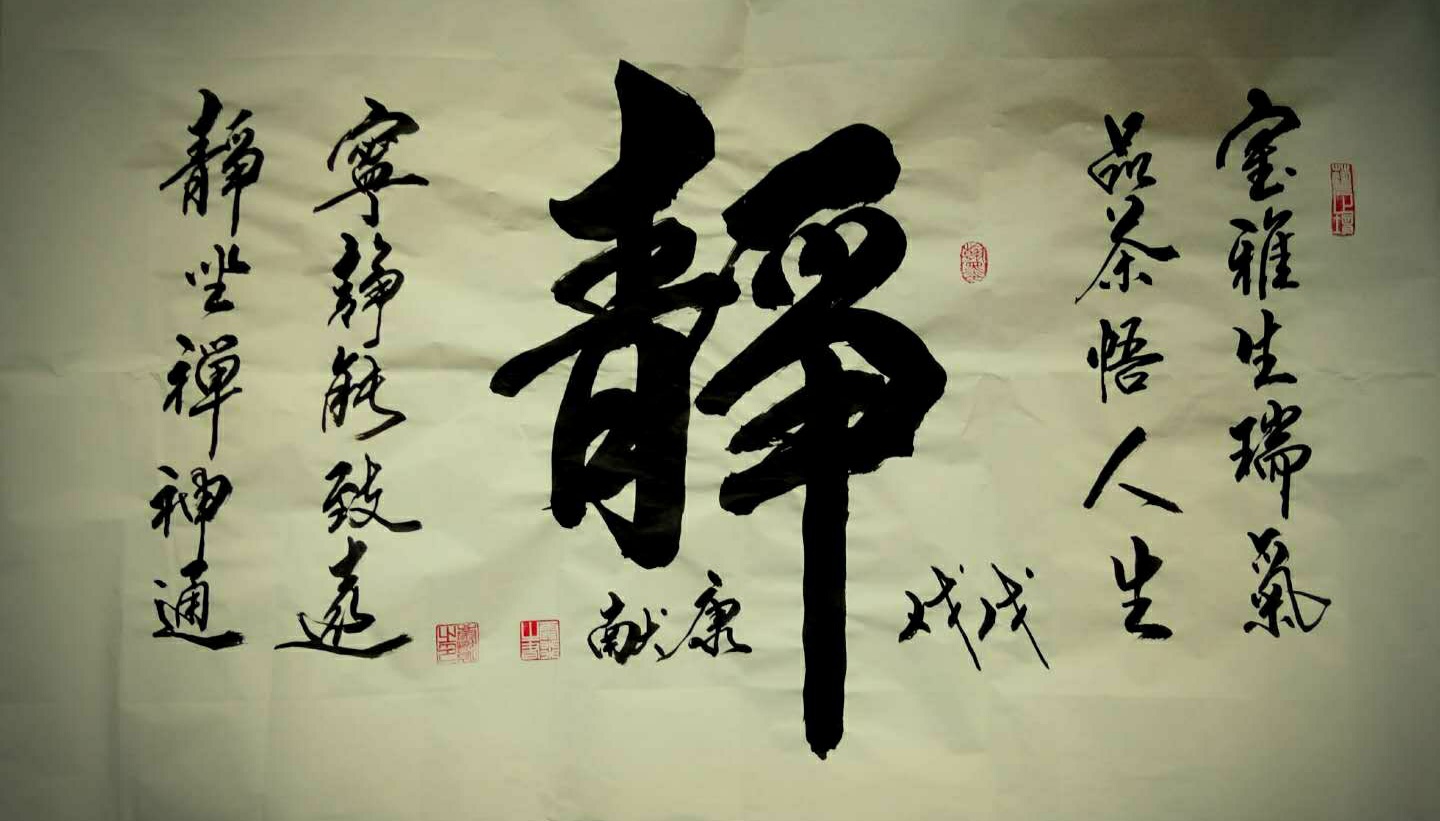 室雅生瑞氣
品茶悟人生
靜
戊戌
康献
寧靜能致遠
靜坐禪神通